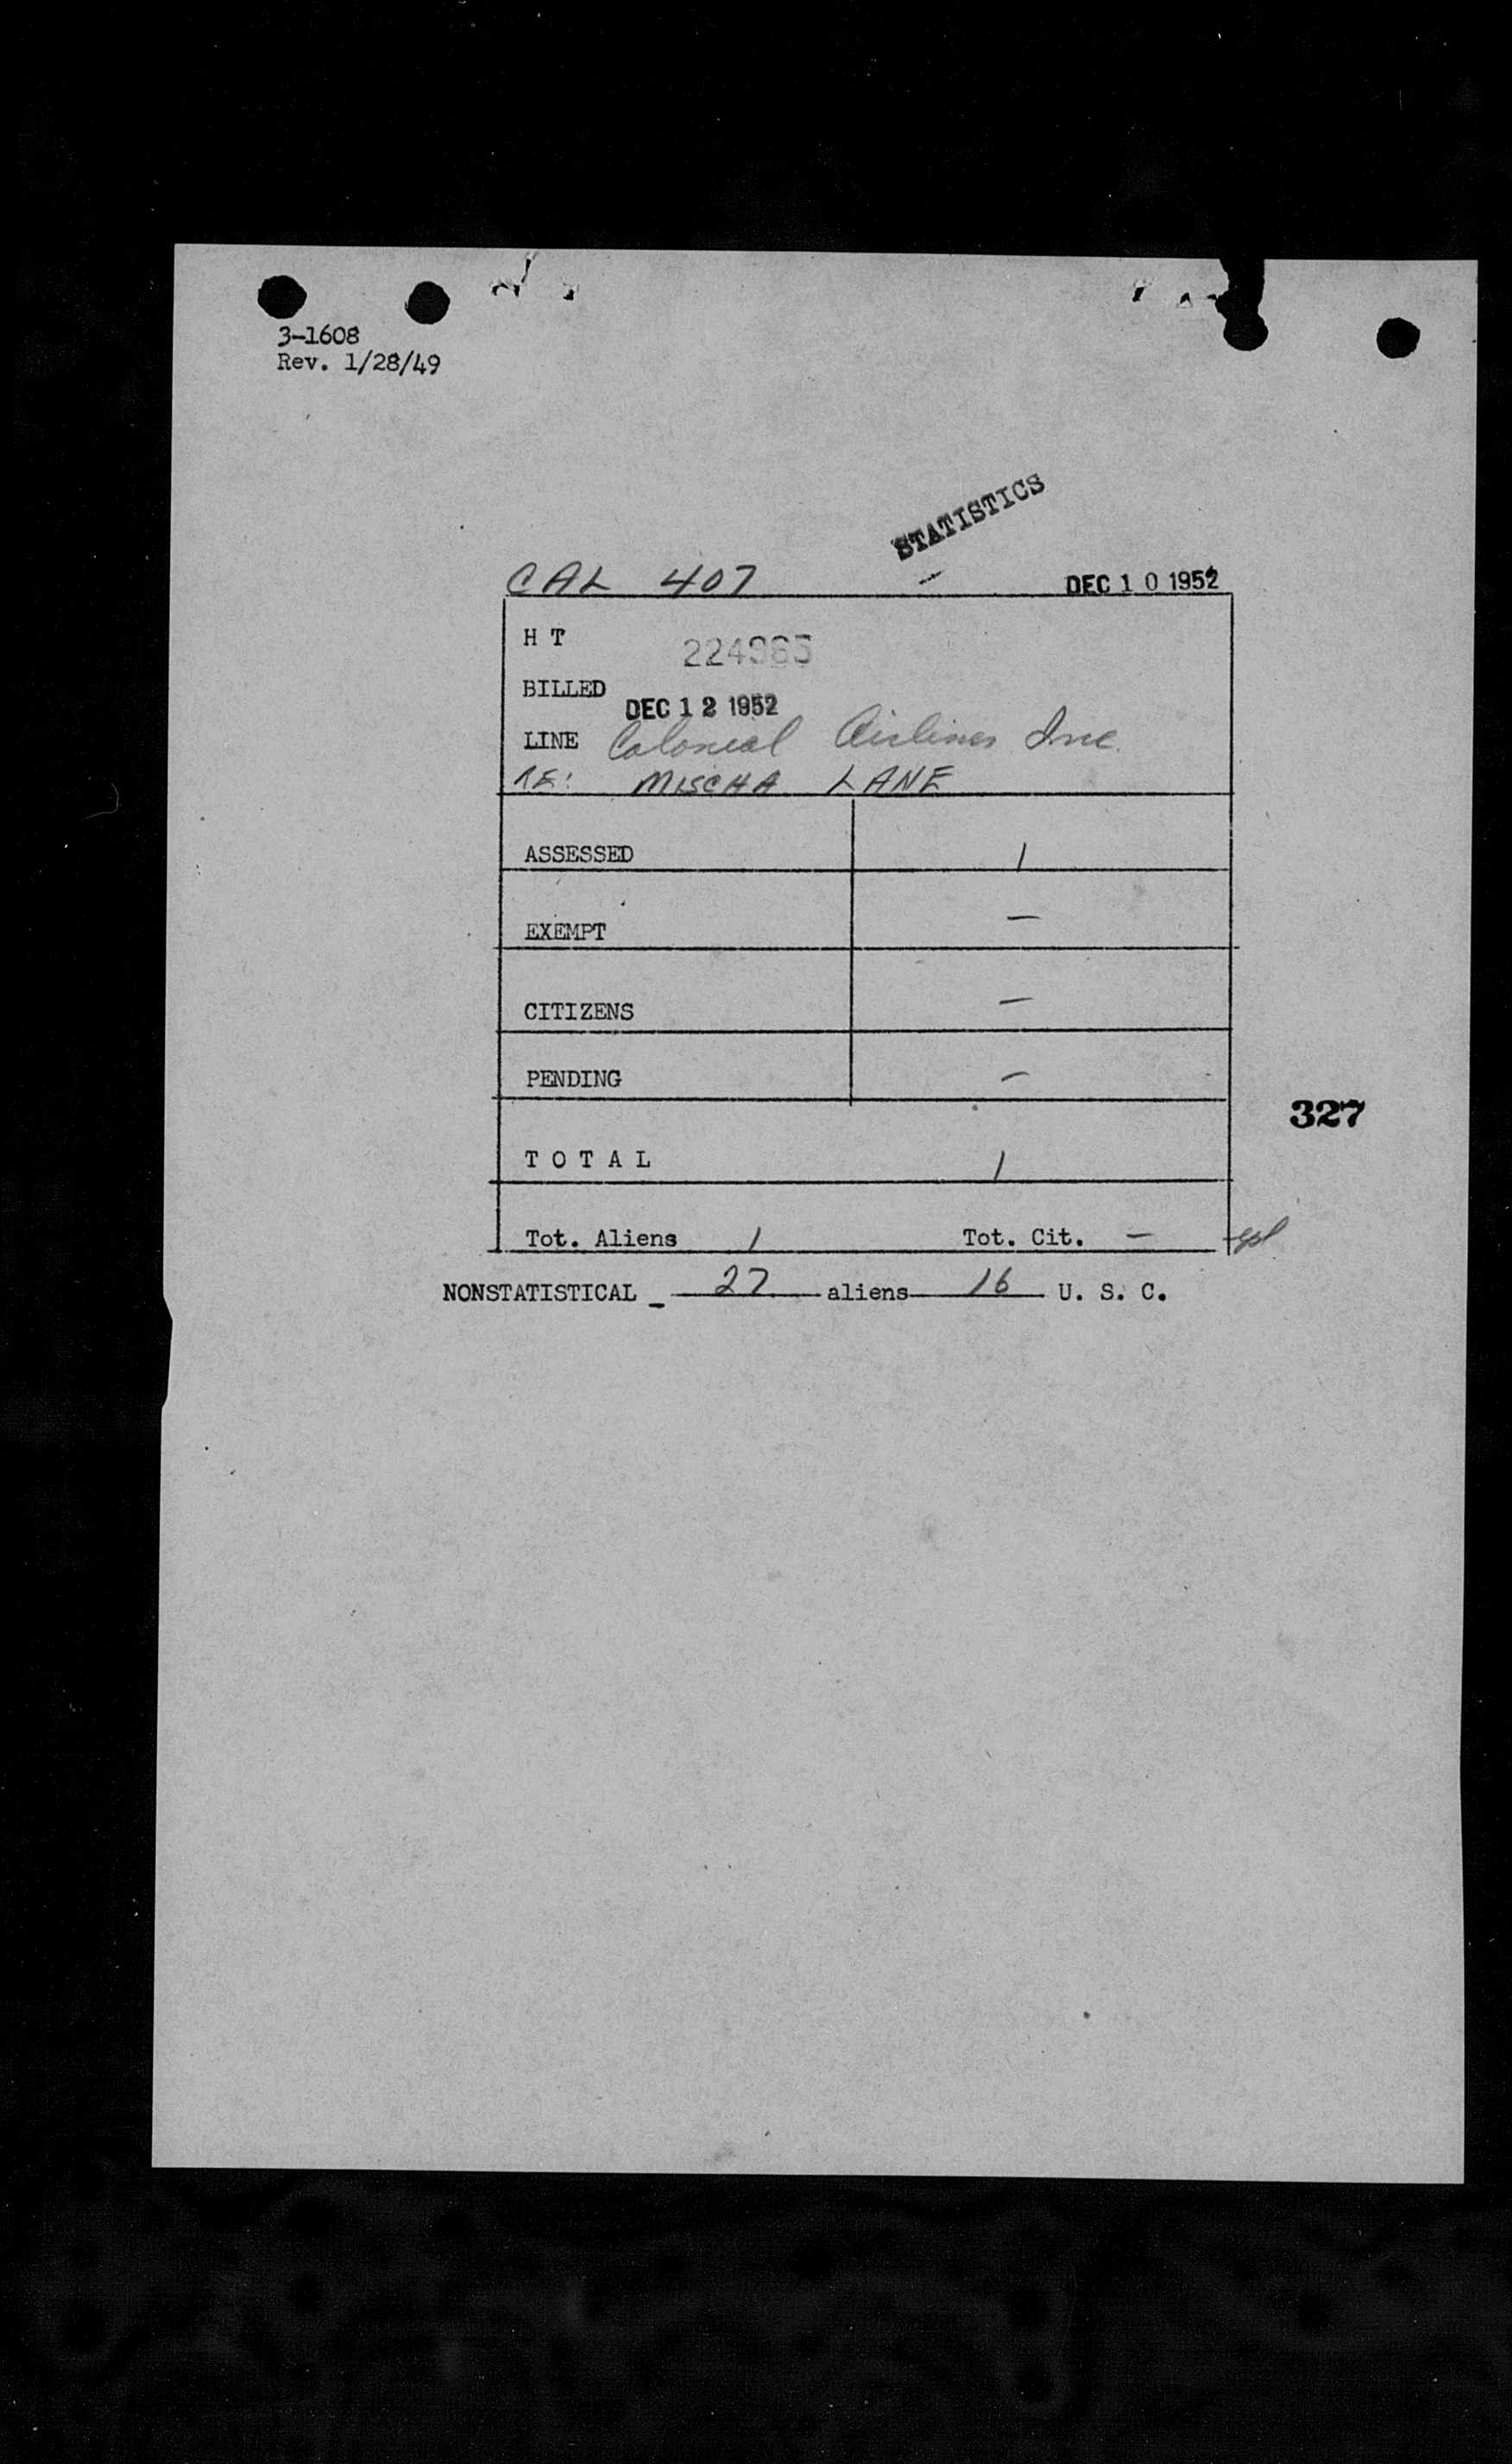 3-1608
Rev. 1/28/49
STATISTICS
CAL 407 — DEC 10 1952
H T 224985
BILLED DEC 12 1952
LINE Colonial Airlines Inc.
RE: MISCHA LANE
ASSESSED 1
EXEMPT —
CITIZENS —
PENDING —
327
T O T A L 1
Tot. Aliens 1 Tot. Cit. —
NONSTATISTICAL - 27 aliens 16 U. S. C.